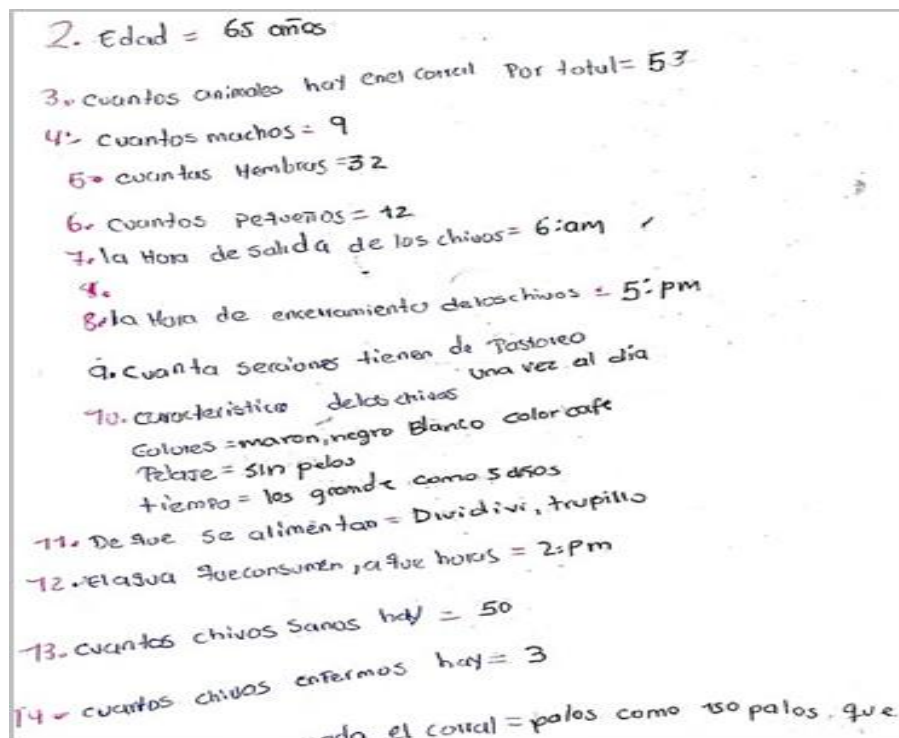 2. Edad = 65 años
3. Cuantos animales hay enel corral Por total= 53
4:- Cuantos machos = 9
5. cuantas Hembras =32
6. Cuantos Pequeños = 12
7. la Hora de salida de los chivos = 6:am
8.
8. la Hora de encerramiento delos chivos = 5:pm
9. Cuanta secciones tienen de Pastoreo
una vez al día
10. característica delos chivos
Colores = maron, negro Blanco color cafe
Pelaje = sin pelos
tiempo = los grande como 5 años
11. De que se alimentan = Dividivi, trupillo
12. El agua que consumen, a que horas = 2:pm
13. cuantos chivos sanos hay = 50
14 - cuantos chivos enfermos hay = 3
el corral = palos como 150 palos, que